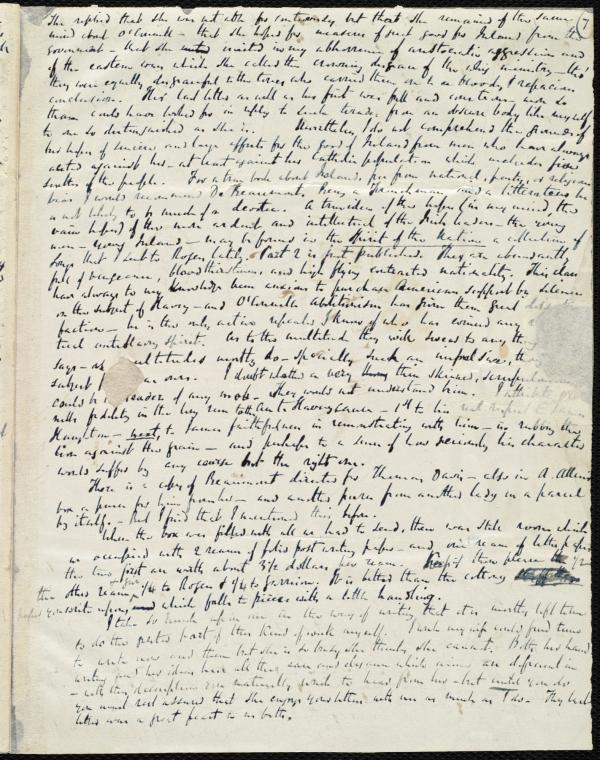 7
She replied that she was not able for controversy but that she remained of the same
mind about O'Connell - that she hoped for measures of great good for Ireland from the
government - that she united in my abhorrence of aristocratic aggression and
of the eastern wars which she called the crowning disgrace of the whig ministry - tho'
they were equally disgraceful to the tories who carried them on to a bloody & rapacious
conclusion. Her last letter as well as her first was full and courteous - more so
than could have looked for in reply to such tirade from an obscure body like myself
to one so distinguished as she is. Nevertheless I do not comprehend the grounds of
her hopes of sincere and large efforts for the good of Ireland from men who have always
acted against her - at least against her Catholic population which includes five
sixths of the people. For a true book about Ireland, free from national, party, or religious
bias I would recommend De Beaumont, being a Frenchman and a litterateur he
is not likely to be much of a devotee. A true idea of the hopes (in my mind, the
vain hopes) of the more ardent and intellectual of the Irish leaders - the young
men - Young Ireland - may be formed in the Spirit of the Nation a collection of
songs that I sent to Rogers lately. Part 2 is just published. They are abundantly
full of vengeance, bloodthirstiness, and high flying contracted nationality. This class
have always to my knowledge been anxious to purchase American support by silence
on the subject of slavery - and O'Connell's abolitionism has given them great
faction - he is the only active repealer I know of who has evinced any
real antislavery spirit. As to the multitude they will swear to any thing
says - as multitudes mostly do - specially such an impulsive,
subject as ours. I doubt whether a very thin skinned, scrupulous
could be leader of any mob. They would not understand him. I attribute
nells fidelity in the long run to the Antislavery cause - 1st to his real
Haughton - next, to James' faithfulness in remonstrating with him - in rubbing the
lion against the grain - and perhaps to a sense of how seriously his character
would suffer by any course but the right one.
There is a copy of Beaumont directed for Thomas Davis - also in A. Allen's
box a purse for him from her - and another purse from another lady in a parcel
by itself. - But I find that I mentioned this before.
When the box was filled with all we had to send, there was still room which
we occupied with 2 reams of folio post writing paper - and one ream of letter paper
the two first are worth about 3½ dollars per ream. Keep of them please 1/2
the other ream, give 1/4 to Rogers & 1/4 to Garrison. It is better than the cottony
paper you write upon, and which falls to pieces with a little handling.
I take so much upon me in the way of writing that it is mostly left to me
to do the greater part of this kind of work myself. I wish my wife could find time
to write now and then but she is so busy she thinks she cannot. Both her hand
writing and her ideas have all the ease and elegance which mine are deficient in
- with this description you naturally wish to hear from her - but until you do
you must rest assured that she enjoys your letters with me as much as I do. They last
letter was a great feast to us both.